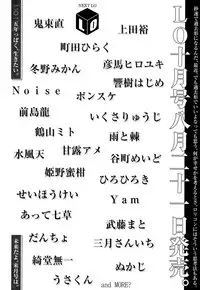 NEXT LO
LO
鬼束直
上田裕
町田ひらく
冬野みかん
彦馬ヒロユキ
Noise
響樹はじめ
ポンスケ
前島龍
いくさりゅうじ
鶴山ミト
雨と棘
水風天
甘露アメ
谷町めいど
姫野蜜柑
ひろひろき
せいほうけい
Yam
あって七草
武藤まと
だんちょ
三月さんいち
綺堂無一
ぬかじ
うさくん
and MORE?
LO十月号八月二十一日発売。